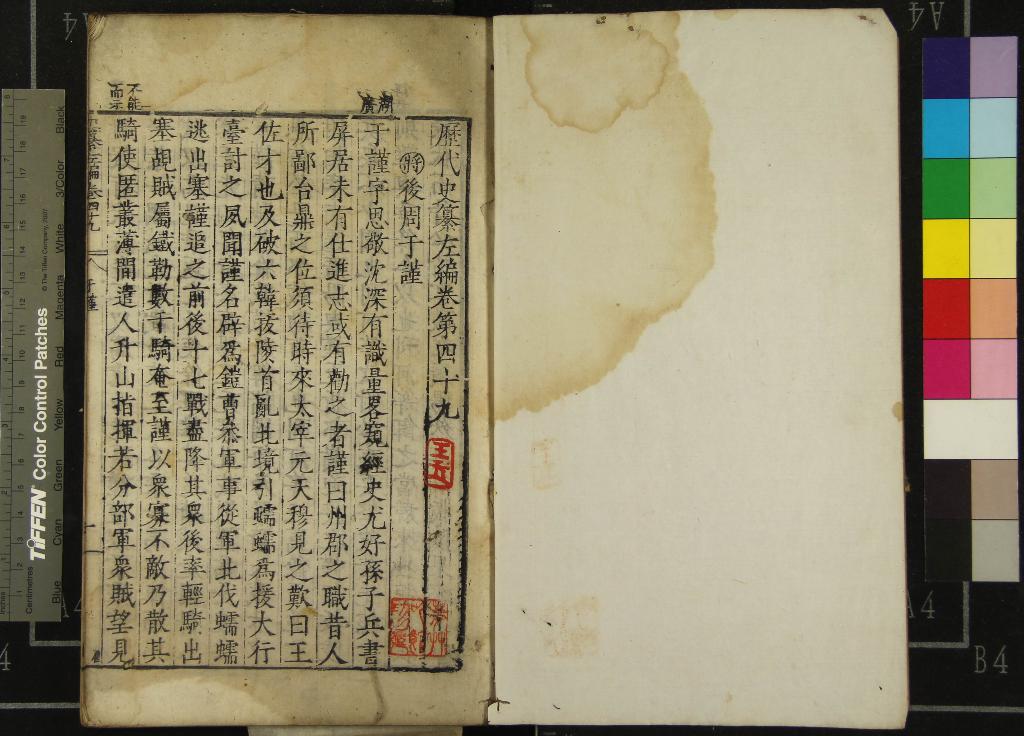 歷代史纂左編卷第四十九
將後周于謹
于謹字思敬沈深有識量畧窺經史尤好孫子兵書
屏居未有仕進志或有勸之者謹曰州郡之職昔人
所鄙台鼎之位須待時來太宰元天穆見之歎曰王
佐才也及破六韓拔陵首亂北境引蠕蠕爲援大行
臺計之夙聞謹名辟爲鎧曹叅軍事從軍北伐蠕蠕
逃出塞謹追之前後十七戰盡降其衆後率輕騎出
塞覘賊屬鐵勒數千騎奄至謹以衆寡不敵乃散其
騎使匿叢薄間遣人升山指揮若分部軍衆賊望見
湖廣
不能
而示
于謹
TIFFEN Color Control Patches
© The Tiffen Company, 2007
Centimetres
Inches
Blue
Cyan
Green
Yellow
Red
Magenta
White
3/Color
Black
A4
A4
A4
A4
B4